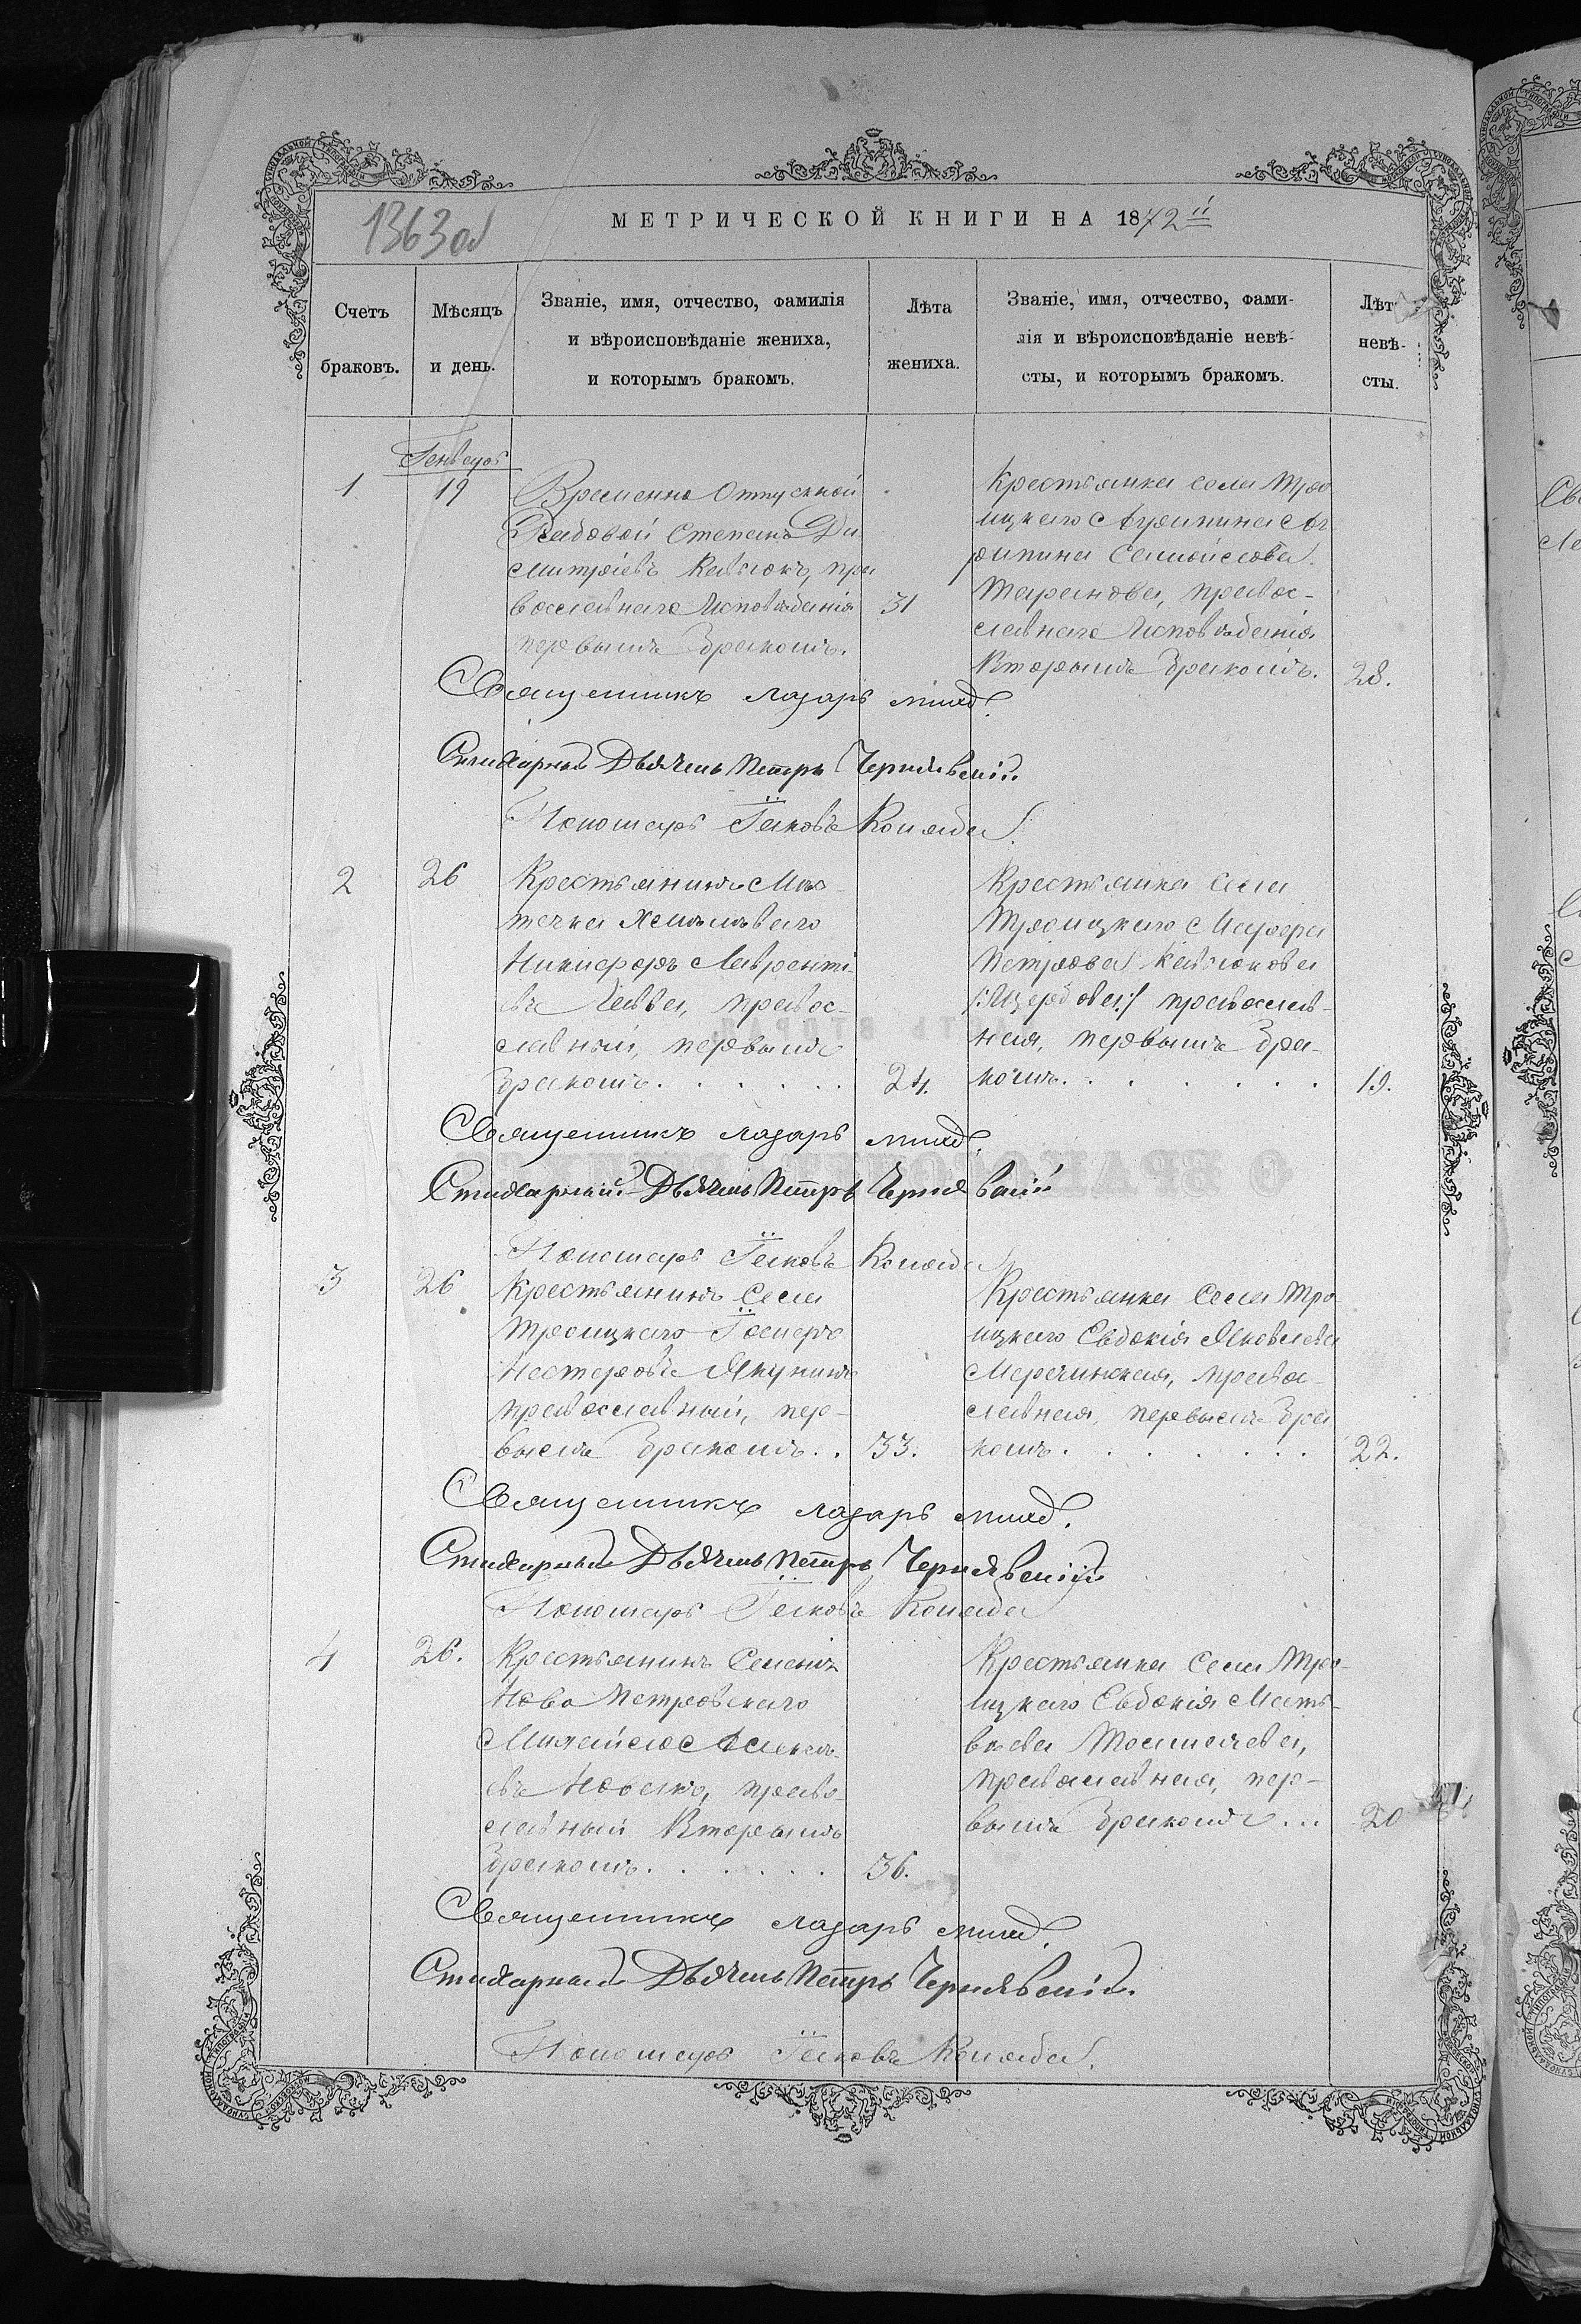 1363 об
МЕТРИЧЕСКОЙ КНИГИ НА 1872й
Счетъ браковъ.
Мѣсяцъ и день.
Званіе, имя, отчество, фамилія
и вѣроисповѣданіе жениха,
и которымъ бракомъ.
Лѣта жениха.
Званіе, имя, отчество, фами-
лія и вѣроисповѣданіе невѣ-
сты, и которымъ бракомъ.
Лѣт невѣ-
сты.
Генварь
1
19
Временно Отпускной
Рядовой Степанъ Ди
митріевъ Кавлюкъ, пра
вославнаго Исповѣданія
первымъ бракомъ.
31
Крестьянка села Трои
цкаго
Самойлова
Таранова, правос-
лавнаго Исповѣданія
Вторымъ бракомъ.
28.
Священникъ Лазарь
Стихарный Дьячекъ Петръ Чернявскій.
Пономарь Іаковъ Коляда.
2
26
Крестьянинъ Мѣс-
течка Хмѣлеваго
Никифоръ Лавренті-
евъ правос-
лавный, первымъ
бракомъ.
24.
Крестьянка села
Троицкаго Марфа
Петрова Кавлюкова
православ-
ная, первымъ бра-
комъ.
19.
Священникъ Лазарь
Стихарный Дьячекъ Петръ Чернявскій
Пономарь Іаковъ Коляда
3
26
Крестьянинъ Села
Троицкаго
Нестеровъ Якунинъ
православный, пер-
вымъ бракомъ..
33.
Крестьянка Села Тро-
ицкаго Евдокія Яковлева
православ-
лавная, первымъ бра
комъ.
22.
Священникъ Лазарь
Стихарный Дьячекъ Петръ Чернявскій
Пономарь Іаковъ Коляда
4
26.
Крестьянинъ Селенія
Ново Петровскаго
Михайло Алексѣ-
евъ Новакъ, право-
славный Вторымъ
бракомъ.
36.
Крестьянка Села Трои-
цкаго Евдокія Матѳ-
ѣева
православная, пер-
вымъ бракомъ...
20
Священникъ Лазарь
Стихарный Дьячекъ Петръ Чернявскій.
Пономарь Іаковъ Коляда.